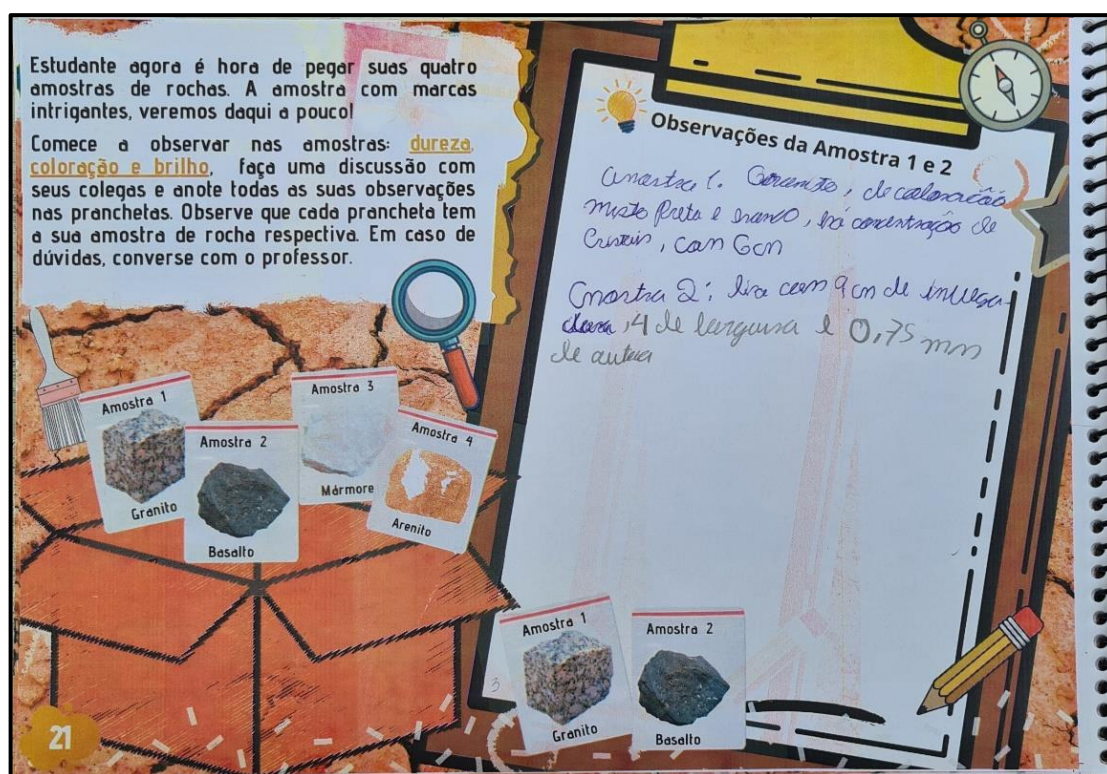 Estudante agora é hora de pegar suas quatro
amostras de rochas. A amostra com marcas
intrigantes, veremos daqui a pouco!
Comece a observar nas amostras: dureza,
coloração e brilho, faça uma discussão com
seus colegas e anote todas as suas observações
nas pranchetas. Observe que cada prancheta tem
a sua amostra de rocha respectiva. Em caso de
dúvidas, converse com o professor.
Amostra 1
Granito
Amostra 2
Basalto
Amostra 3
Mármore
Amostra 4
Arenito
21
Observações da Amostra 1 e 2
Amostra 1. Granito, de coloração
misto Preta e branco, concentração de
Cristais, com 6cm
Amostra 2: com 9 cm de
4 de largura e 0,75 mm
de
Amostra 1
Granito
Amostra 2
Basalto
3